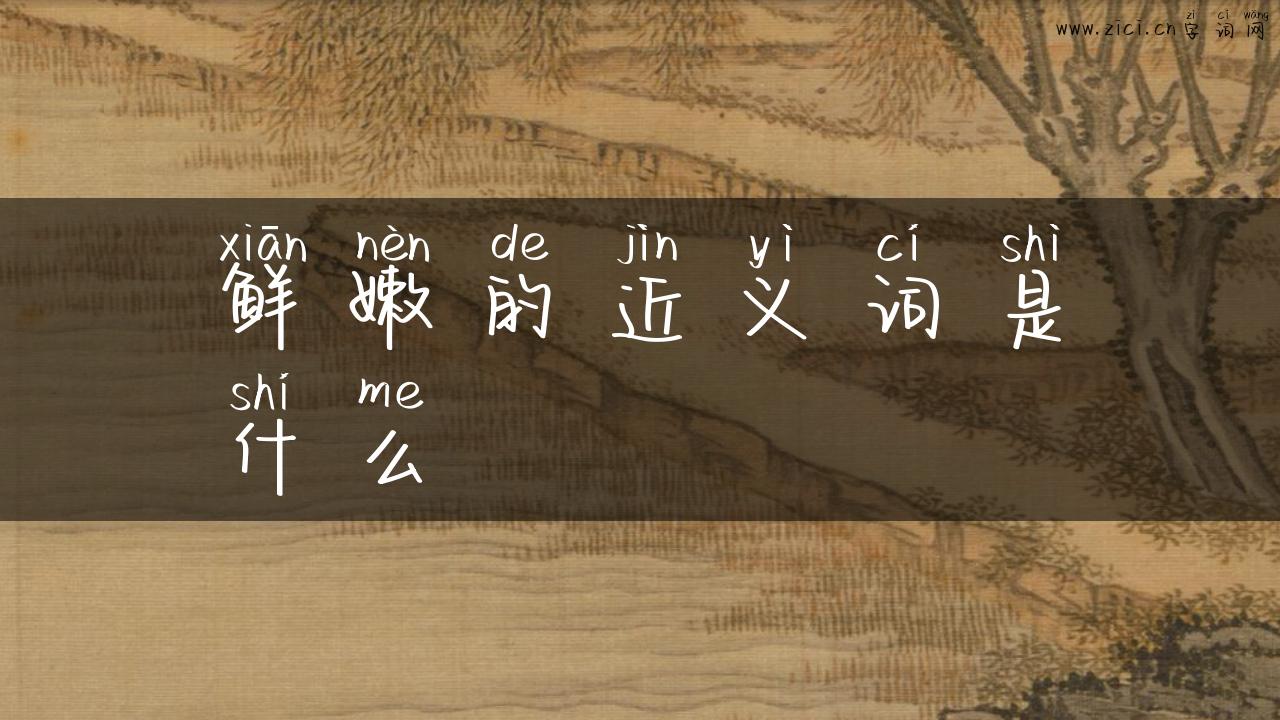 zì cí wǎng
www.zici.cn字词网
xiān nèn de jìn yì cí shì
鲜嫩的近义词是
shí me
什么